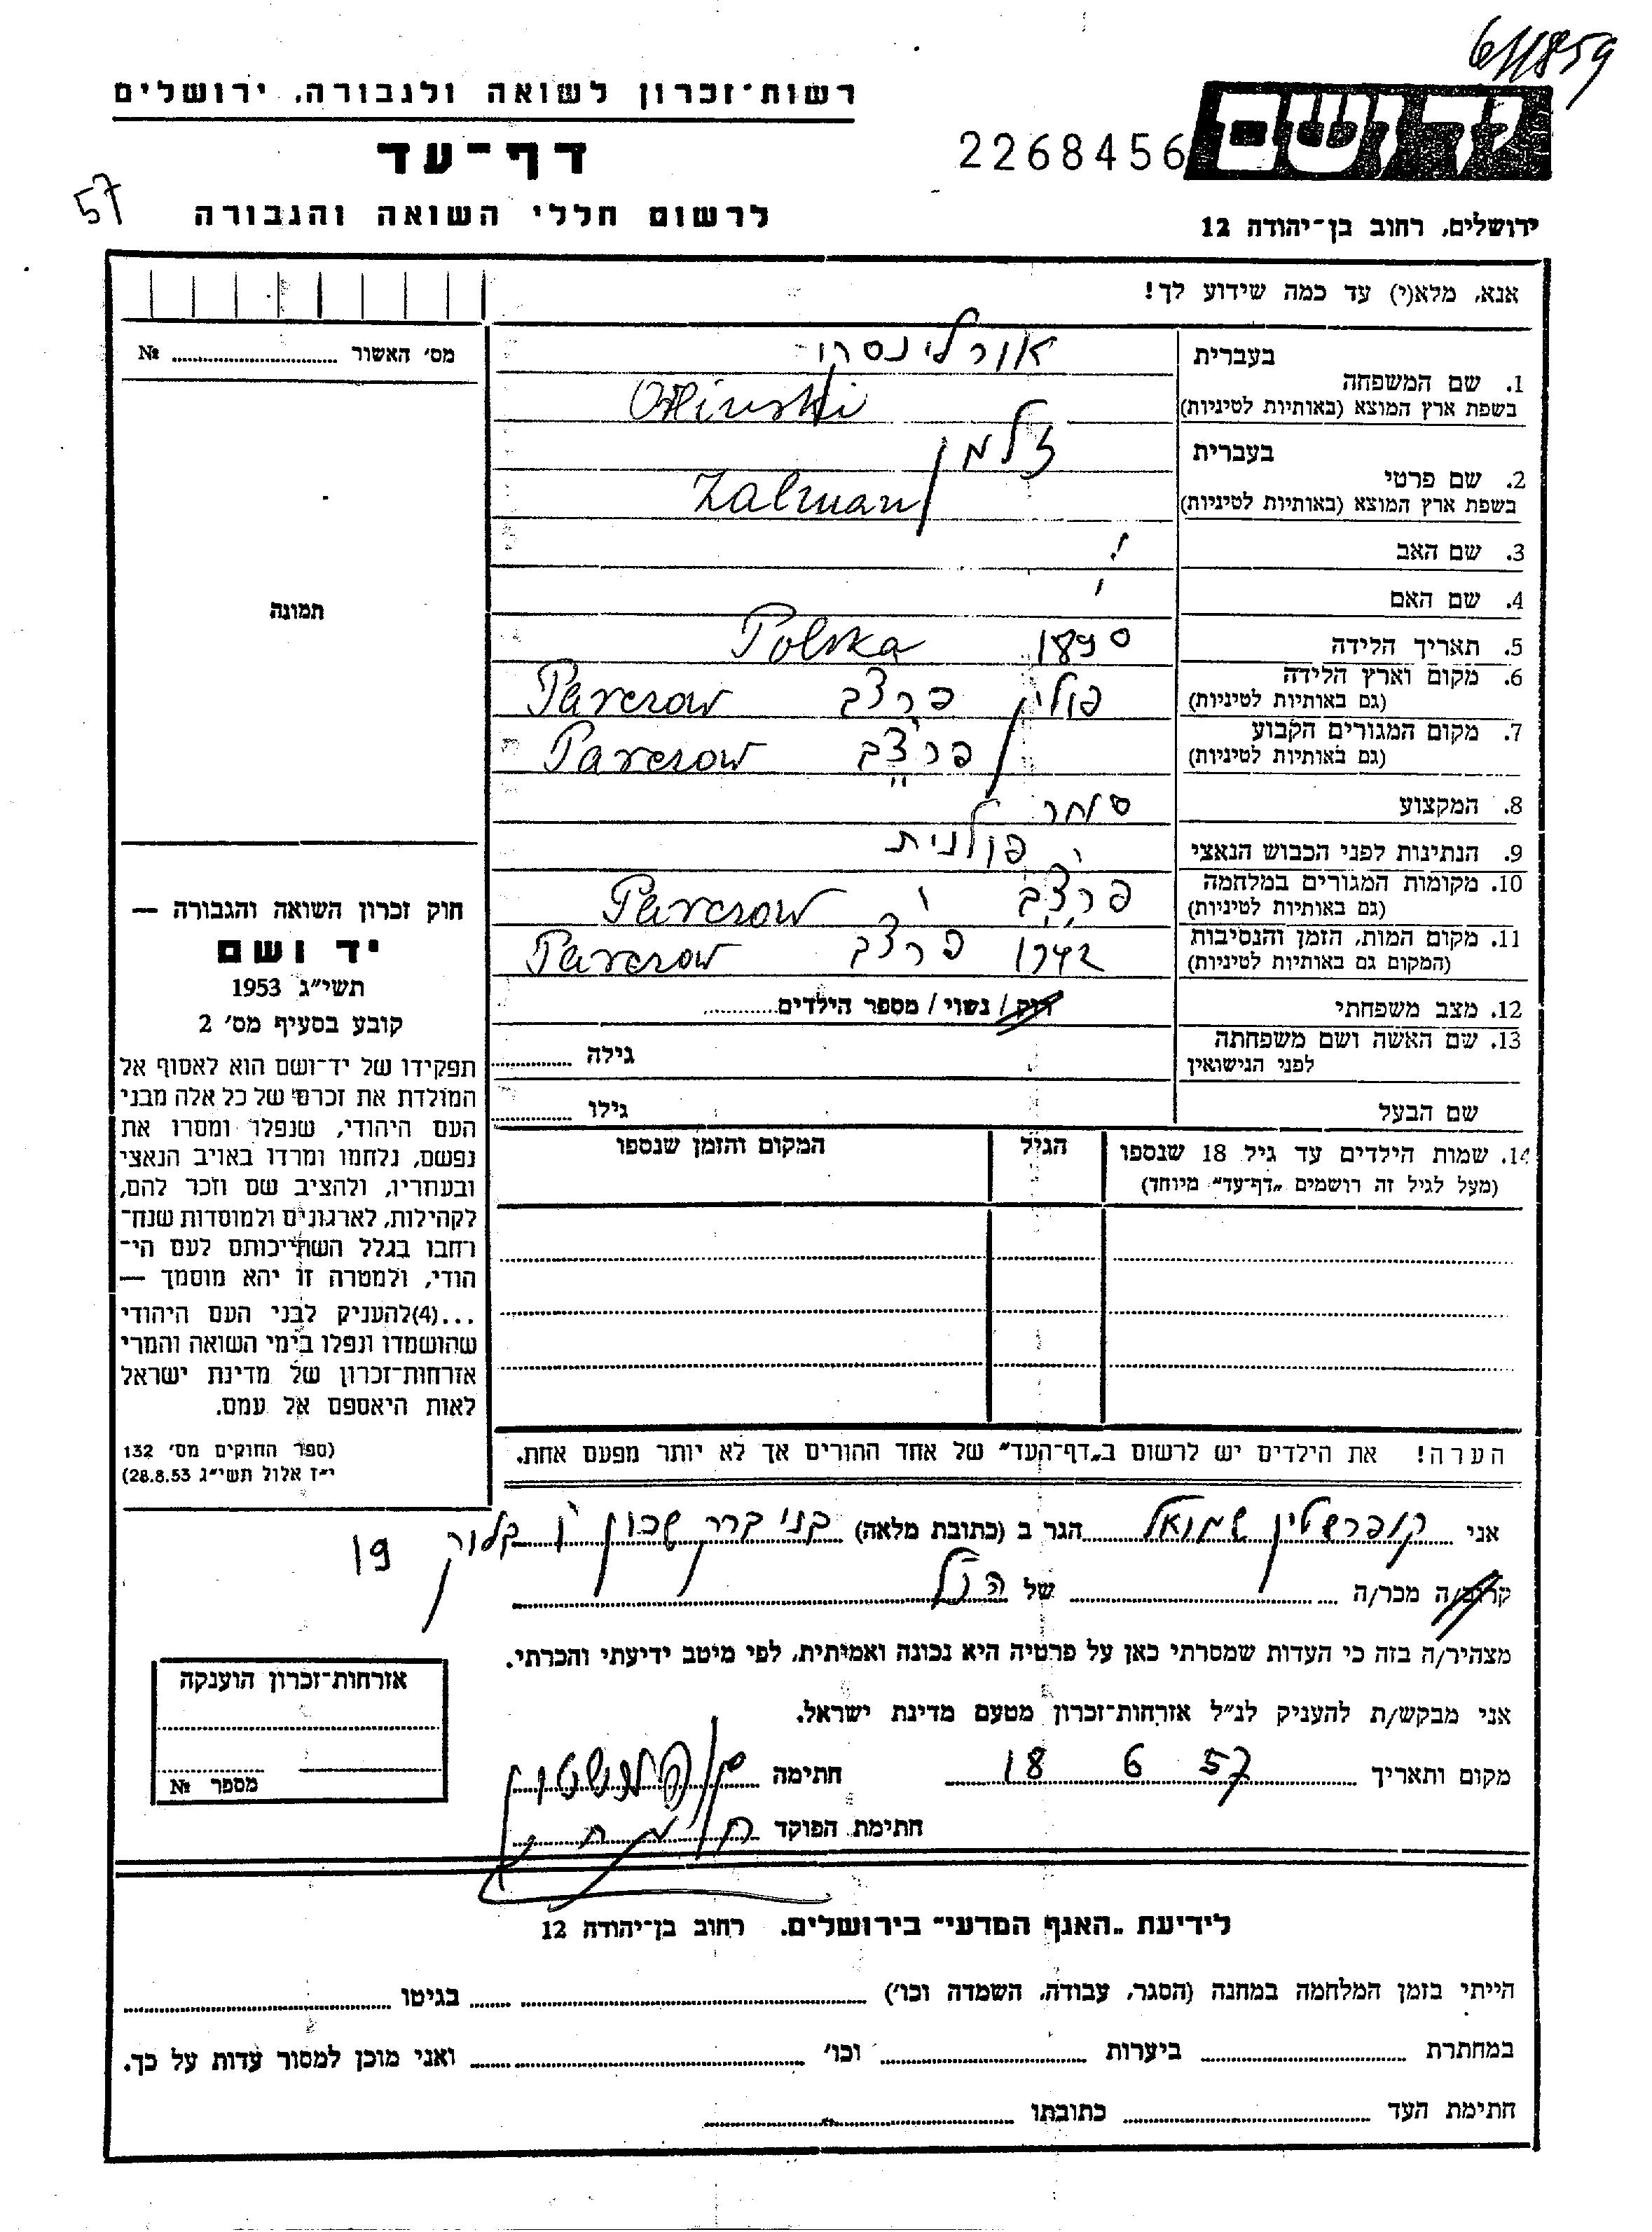 61/1859
רשות־זכרון לשואה ולגבורה, ירושלים
ידושם
דף־עד
2268456
57
לרשום חללי השואה והגבורה
ירושלים, רחוב בן־יהודה 12
אנא, מלא(י) עד כמה שידוע לך!
מס׳ האשור № ............
1. שם המשפחה
בעברית אורלינסקי
בשפת ארץ המוצא (באותיות לטיניות) Orlinski
2. שם פרטי
בעברית זלמן
בשפת ארץ המוצא (באותיות לטיניות) Zalman
3. שם האב
4. שם האם
תמונה
5. תאריך הלידה 1890 Polska
6. מקום וארץ הלידה (גם באותיות לטיניות) פולין פרצב Parczow
7. מקום המגורים הקבוע (גם באותיות לטיניות) פרצב Parczow
8. המקצוע סוחר
9. הנתינות לפני הכבוש הנאצי פולנית
10. מקומות המגורים במלחמה (גם באותיות לטיניות) פרצב Parczow
11. מקום המות, הזמן והנסיבות (המקום גם באותיות לטיניות) 1942 פרצב Parczow
12. מצב משפחתי רוק / נשוי / מספר הילדים............
13. שם האשה ושם משפחתה לפני הנישואין גילה ............
שם הבעל גילו ............
14. שמות הילדים עד גיל 18 שנספו
(מעל לגיל זה רושמים „דף־עד” מיוחד)
הגיל
המקום והזמן שנספו
חוק זכרון השואה והגבורה —
יד ושם
תשי״ג 1953
קובע בסעיף מס׳ 2
תפקידו של יד־ושם הוא לאסוף אל
המולדת את זכרם של כל אלה מבני
העם היהודי, שנפלו ומסרו את
נפשם, נלחמו ומרדו באויב הנאצי
ובעוזריו, ולהציב שם וזכר להם,
לקהילות, לארגונים ולמוסדות שנח־
רחבו בגלל השתייכותם לעם הי־
הודי, ולמטרה זו יהא מוסמך —
...(4)להעניק לבני העם היהודי
שהושמדו ונפלו בימי השואה והמרי
אזרחות־זכרון של מדינת ישראל
לאות היאספם אל עמם.
(ספר החוקים מס׳ 132
י״ז אלול תשי״ג 28.8.53)
הערה! את הילדים יש לרשום ב„דף־העד” של אחד ההורים אך לא יותר מפעם אחת.
אני קופרשטין שמואל הגר ב (כתובת מלאה) בני ברק שכון ו׳ בלוק 19
קרוב/ה מכר/ה ............ של הנ״ל
מצהיר/ה בזה כי העדות שמסרתי כאן על פרטיה היא נכונה ואמיתית, לפי מיטב ידיעתי והכרתי.
אני מבקש/ת להעניק לנ״ל אזרחות־זכרון מטעם מדינת ישראל.
מקום ותאריך 57 6 18 חתימה
חתימת הפוקד
אזרחות־זכרון הוענקה
מספר №
לידיעת „האגף המדעי” בירושלים, רחוב בן־יהודה 12
הייתי בזמן המלחמה במחנה (הסגר, עבודה, השמדה וכו׳) ............ בגיטו ............
במחתרת ............ ביערות ............ וכו׳ ............ ואני מוכן למסור עדות על כך.
חתימת העד ............ כתובתו ............